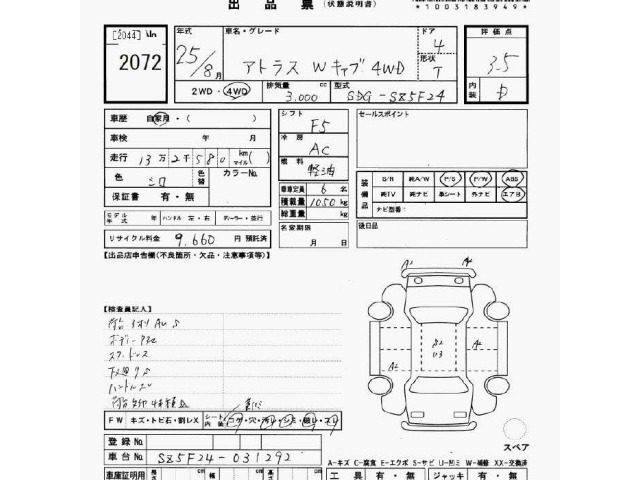 出品票 (状態説明書)
*1003183949*
[2044] No
2072
年式
25/8月
車名・グレード
アトラス Wキャブ 4WD
ドア
4
形状
T
評価点
3.5
内装
D
2WD・4WD
排気量
3,000 cc
型式
SDG-SZ5F24
車歴 自家用・( )
車検 年 月
走行 13万2千580 km マイル ( )
色 シロ 色替 カラーNo.
保証書 有・無
モデル年式 年 ハンドル 左・右 ディーラー・並行
リサイクル料金 9,660 円 預託済
シフト
F5
冷房
AC
燃料
軽油
乗車定員 6 名
積載量 1050 kg
総重量 kg
名変期限
月 日
セールスポイント
装備品
S/R 純A/W P/S P/W ABS
純TV 純ナビ 革シート 外ナビ エアB
ナビ型番:
後日品
【出品店申告欄(不良箇所・欠品・注意事項等)】
【検査員記入】
FW キズ・トビ石・割レX シート内装 コゲ・穴・汚レ・シミ・破レ・スレ
登録No
車台No SZ5F24-031292
A2 A2
A2 A2
スペア
A-キズ C-腐食 E-エクボ S-サビ U-凹ミ W-補修 XX-交換済
車庫証明用 長さ cm 幅 cm 高さ cm
工具 有・無 ジャッキ 有・無